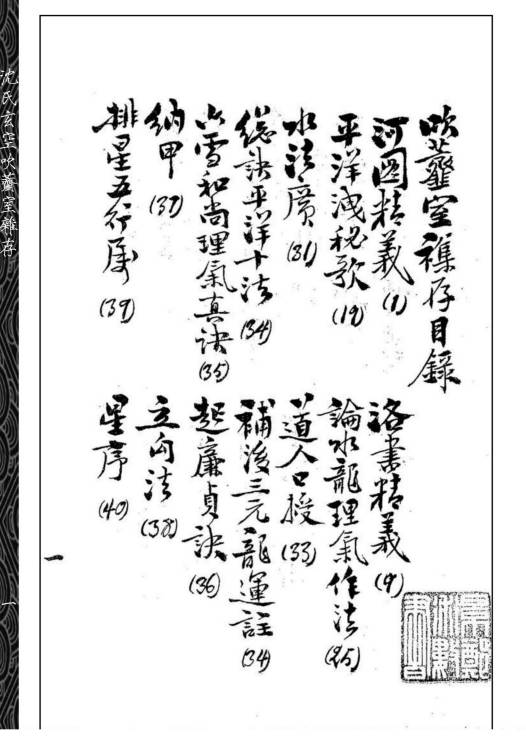 吹虀室襍存目錄
河圖精義 (1) 洛書精義 (9)
平洋洩秘歌 (19) 論水龍理氣作法 (25)
水法廣 (31) 道人口授 (33)
總訣平洋十法 (34) 補後三元龍運註 (34)
雪和尚理氣真訣 (35) 起廉貞訣 (36)
納甲 (37) 立向法 (38)
排星五行屬 (39) 星序 (40)
一
沈氏玄空吹虀室雜存
一